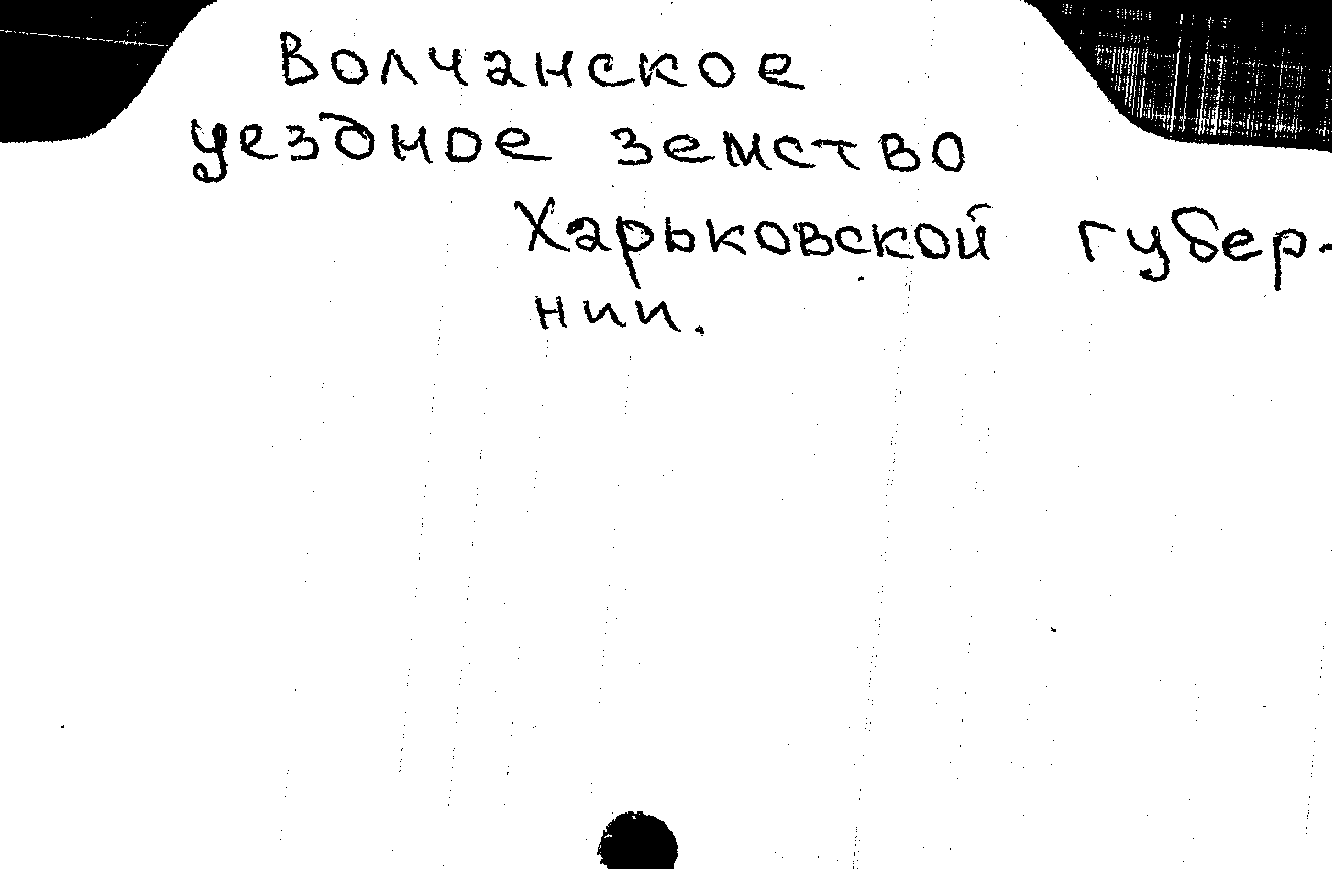 Волчанское
уездное земство
Харьковской губер-
нии.